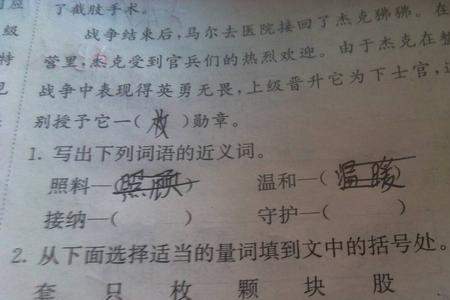 了截肢手术。
级 战争结束后，马尔去医院接回了杰克狒狒。在
特 营里，杰克受到官兵们的热烈欢迎。由于杰克在整
战争中表现得英勇无畏，上级晋升它为下士官，
别授予它一（枚）勋章。
1. 写出下列词语的近义词。
照料—（照顾） 温和—（温暖）
接纳—（ ） 守护—（ ）
2. 从下面选择适当的量词填到文中的括号处。
套 只 枚 颗 块 股